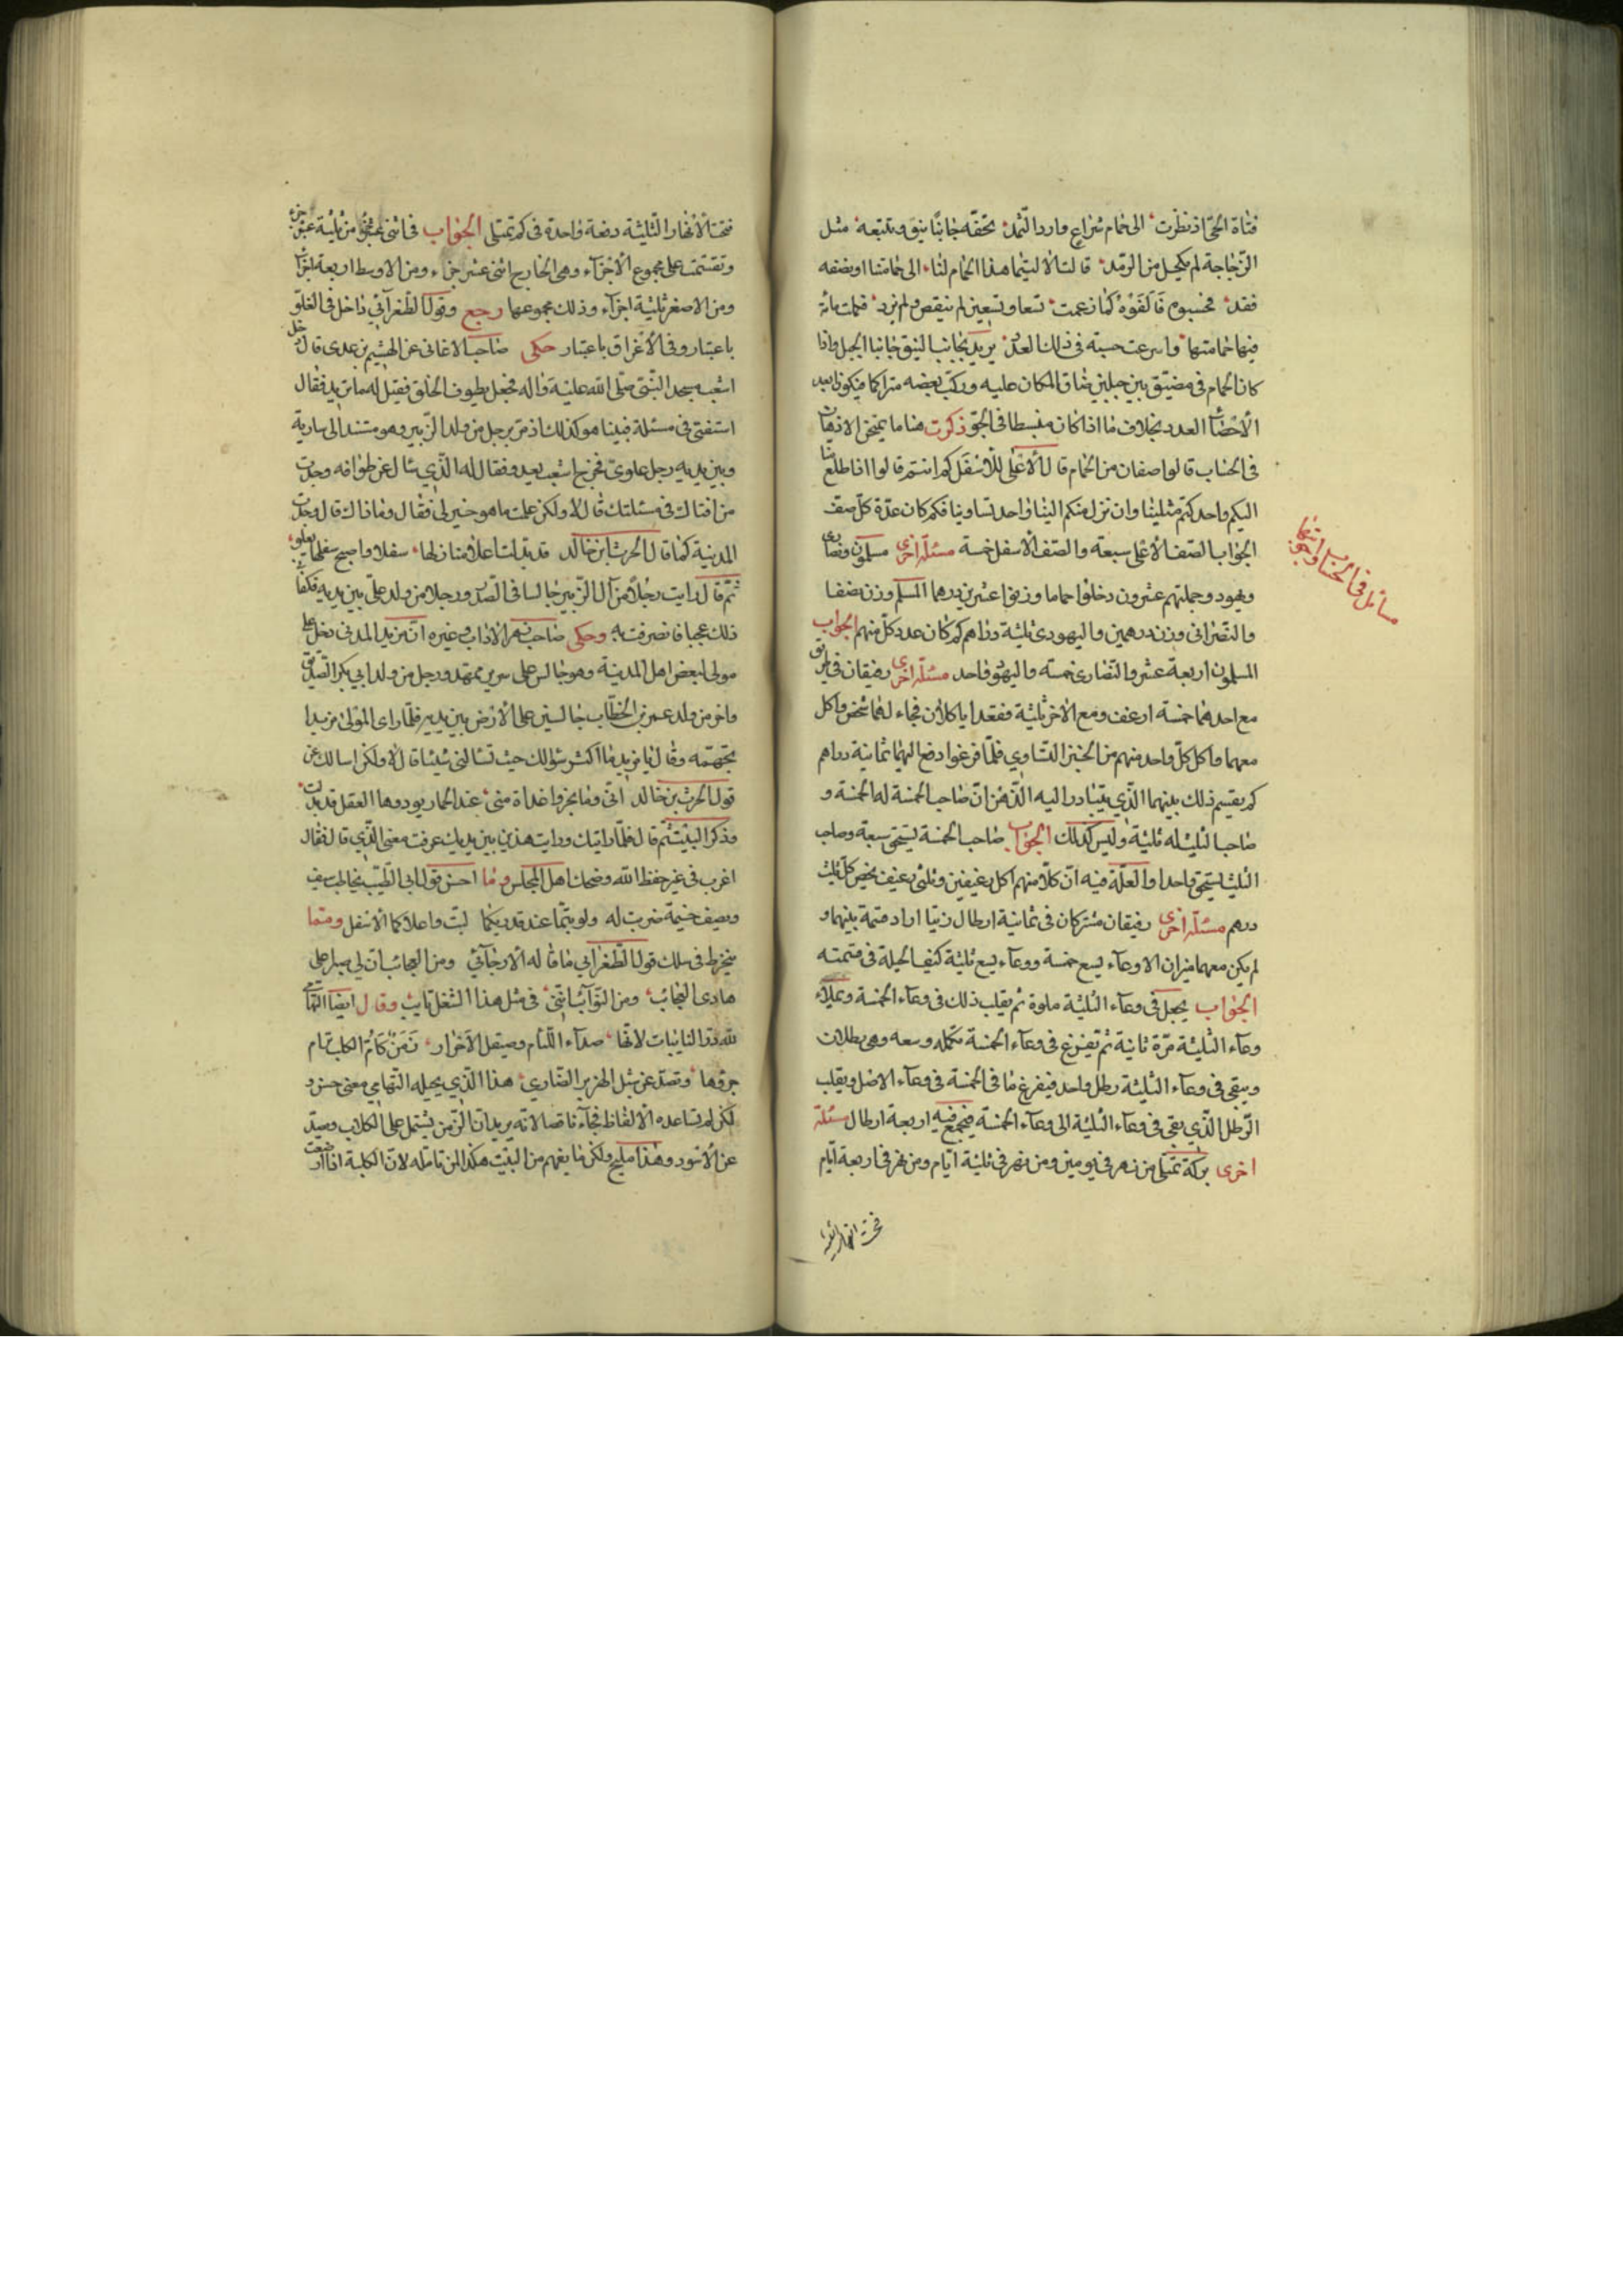 فتاة الحي اذ نظرت الى حمام شراع وارد الثمد يحفه جانبا نيق وتتبعه مثل
الزجاجة لم تكحل من الرمد قالت الا ليتما هذا الحمام لنا الى حمامتنا او نصفه
فقد فحسبوه فالفوه كما زعمت تسعا وتسعين لم ينقص ولم يزد فكملت مائة
فيها حمامتها واسرعت حسبة في ذلك العدد يريد بجانبا النيق جانبا الجبل واذا
كان الحمام في مضيق بين جبلين ضاق المكان عليه وركب بعضه متراكما فيكون ابعد
لاحصاء العدد بخلاف ما اذا كان منبسطا في الجو ذكرت هنا ما يمتحن الاذهان
في الحساب قالوا صفان من الحمام قال الاعلى للاسفل كم انتم قالوا اذا طلع منا
اليكم واحد كنتم مثلينا وان نزل منكم الينا واحد تساوينا فكم كان عدة كل صف
الجواب الصف الاعلى سبعة والصف الاسفل خمسة مسئلة اخرى مسلمون ونصارى
ويهود وجملتهم عشرون دخلوا حماما وزنوا عشرين درهما المسلم وزن نصفا
والنصراني وزن درهمين واليهودي ثلثة دراهم كم كان عدد كل منهم الجواب
المسلمون اربعة عشر والنصارى خمسة واليهود واحد مسئلة اخرى رفيقان في طريق
مع احدهما خمسة ارغف ومع الاخر ثلثة فقعدا ياكلان فجاء لهما شخص واكل
معهما واكل كل واحد منهم من الخبز التساوي فلما فرغوا دفع اليهما ثمانية دراهم
كم يقسم ذلك بينهما الذي يتبادر اليه الذهن ان صاحب الخمسة له الخمسة و
صاحب الثلثة له ثلثة وليس كذلك الجواب صاحب الخمسة يستحق سبعة وصاحب
الثلثة يستحق واحدا والعلة فيه ان كلا منهم اكل رغيفين وثلثي رغيف يخص كل ثلث
درهم مسئلة اخرى رفيقان مشتركان في ثمانية ارطال زيتا ارادا قسمة بينهما و
لم يكن معهما ميزان الا وعاء يسع خمسة ووعاء يسع ثلثة كيف الحيلة في قسمته
الجواب يجعل في وعاء الثلثة ملوة ثم يقلب ذلك في وعاء الخمسة ويملاء
وعاء الثلثة مرة ثانية ثم تفرغ في وعاء الخمسة تكملة وسعه وهي رطلان
ويبقى في وعاء الثلثة رطل واحد فيفرغ ما في الخمسة في وعاء الاصل ويقلب
الرطل الذي بقي في وعاء الثلثة الى وعاء الخمسة فيجمع فيه اربعة ارطال مسئلة
اخرى بركة تمتلى من نهر في يومين ومن نهر في ثلثة ايام ومن نهر في اربعة ايام
مسائل في الحساب
فتحت الانهار الثلثة دفعة واحدة في كم تمتلى الجواب في اثنى عشر جزءا من ثلثة عشر جزء
وتقسمت على مجموع الاجزاء وهي الخارج اثنى عشر جزاء ومن الاوسط اربعة اجزاء
ومن الاصغر ثلثة اجزاء وذلك مجموعها رجع وقول الطغرائي داخل في الغلو
باعتبار وفي الاغراق باعتبار حكى صاحب الاغاني عن الهيثم بن عدي قال دخل
اشعب مسجد النبي صلى الله عليه واله فجعل يطوف الحلق فقيل له ما تريد فقال
استفتى في مسئلة فبينا هو كذلك اذ مر برجل من ولد الزبير وهو مستند الى سارية
وبين يديه رجل علوي فخرج اشعب يعدو فقال له الذي سال عن طوافه وجدت
من افتاك في مسئلتك قال لا ولكن علمت ما هو خير لي فقال وما ذاك قال وجدت
المدينة كما قال الحرث بن خالد قد بدلت اعلا منازلها سفلا واصبح سفلها يعلو
ثم قال رايت رجلا من آل الزبير جالسا في الصدر ورجلا من ولد علي بين يديه فكفا
ذلك عجبا فانصرفت به وحكى صاحب زهر الاداب وغيره ان مزيد المدني دخل على
مولى لبعض اهل المدينة وهو جالس على سرير ممهد ورجل من ولد ابي بكر الصديق
واخر من ولد عمر بن الخطاب جالسين على الارض بين يديه فلما راى المولى مزيدا
تجهمه وقال يا مزيد ما اكثر سؤالك حيث تسالني شيئا قال لا ولكن اسالك عن
قول الحرث بن خالد اني وما نحروا غداة منى عند الجمار يؤدها العقل قد بدلت
وذكر البيت ثم قال فلما رايتك ورايت هذين بين يديك عرفت معنى الذي قال فقال
اغرب في غير حفظ الله وضحك اهل المجلس وما احسن قول ابي الطيب يخاطب سيف
ويصف خيمة ضربت له
ينخرط في سلك قول الطغرائي ما قاله الارجاني ومن العجائب ان لي صبرا على
هادى العجائب ومن النوائب انني في مثل هذا الشغل نايب وقال ايضا التهامي
لله در النايبات لانها صداء اللئام وصيقل الاحرار زمن كام الكلب ترام
جروها وتصد عن شبل الهزبر الضاري هذا الذي يحيله التهامي معنى حسن و
لكن لم تساعده الالفاظ فجاء ناقصا لانه يريد ان الزمن يشتمل على الكلاب ويصد
عن الاسود وهذا مليح ولكن ما يفهم من البيت هكذا لمن تامله لان الكلبة اذا ارضعت